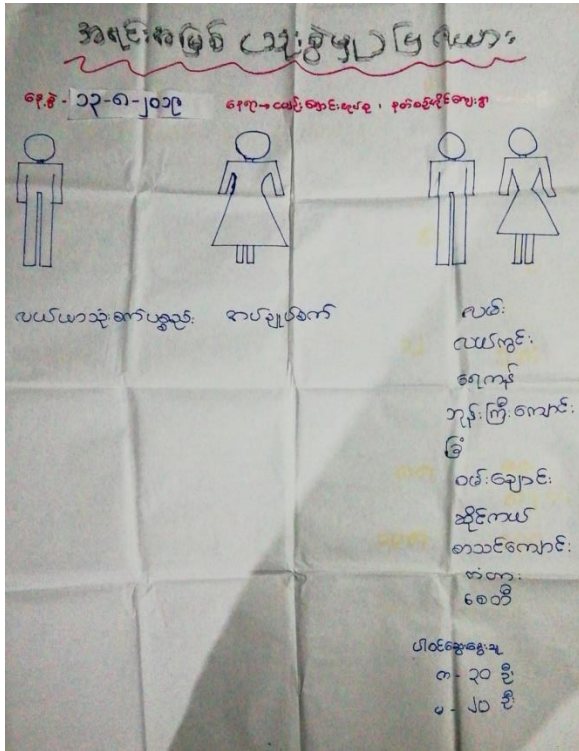 အရင်းအမြစ် သုံးစွဲမှုပြ ဇယား
နေ့စွဲ - ၁၃-၈-၂၀၁၉
နေရာ →
လယ်ယာသုံးစက်ပစ္စည်း
အပ်ချုပ်စက်
လမ်း
လယ်ကွင်း
ရေကန်
ဘုန်းကြီးကျောင်း
ခြံ
ဝမ်းချောင်း
ဆိုင်ကယ်
စာသင်ကျောင်း
တံတား
စေတီ
ပါဝင်ဆွေးနွေးသူ
က - ၃၀ ဦး
မ - ၂၀ ဦး